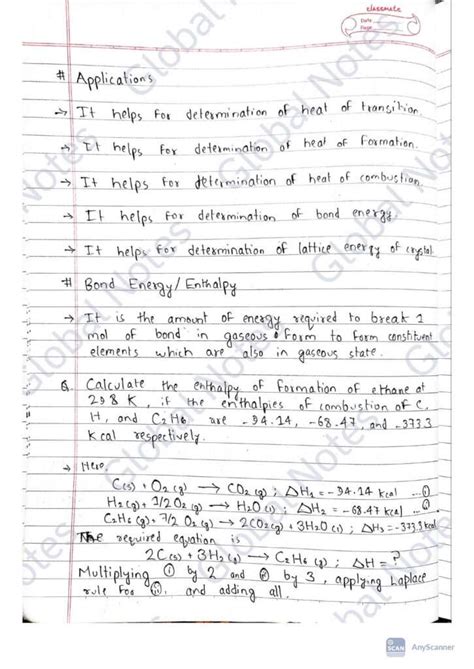 classmate
Date
Page
# Applications
→ It helps for determination of heat of transition.
→ It helps for determination of heat of formation.
→ It helps for determination of heat of combustion.
→ It helps for determination of bond energy.
→ It helps for determination of lattice energy of crystal.
# Bond Energy/Enthalpy
→ It is the amount of energy required to break 1
mol of bond in gaseous form to form constituent
elements which are also in gaseous state.
Q. Calculate the enthalpy of formation of ethane at
298 K, if the enthalpies of combustion of C,
H, and C₂H₆ are -94.14, -68.47, and -373.3
Kcal respectively.
→ Here,
C(s) + O₂(g) → CO₂(g) ; ΔH₁ = -94.14 Kcal ... (i)
H₂(g) + 1/2 O₂(g) → H₂O(l) ; ΔH₂ = -68.47 Kcal ... (ii)
C₂H₆(g) + 7/2 O₂(g) → 2CO₂(g) + 3H₂O(l) ; ΔH₃ = -373.3 Kcal
The required equation is
2C(s) + 3H₂(g) → C₂H₆(g) ; ΔH = ?
Multiplying (i) by 2 and (ii) by 3, applying Laplace
rule for (iii), and adding all.
Global Notes
SCAN
AnyScanner